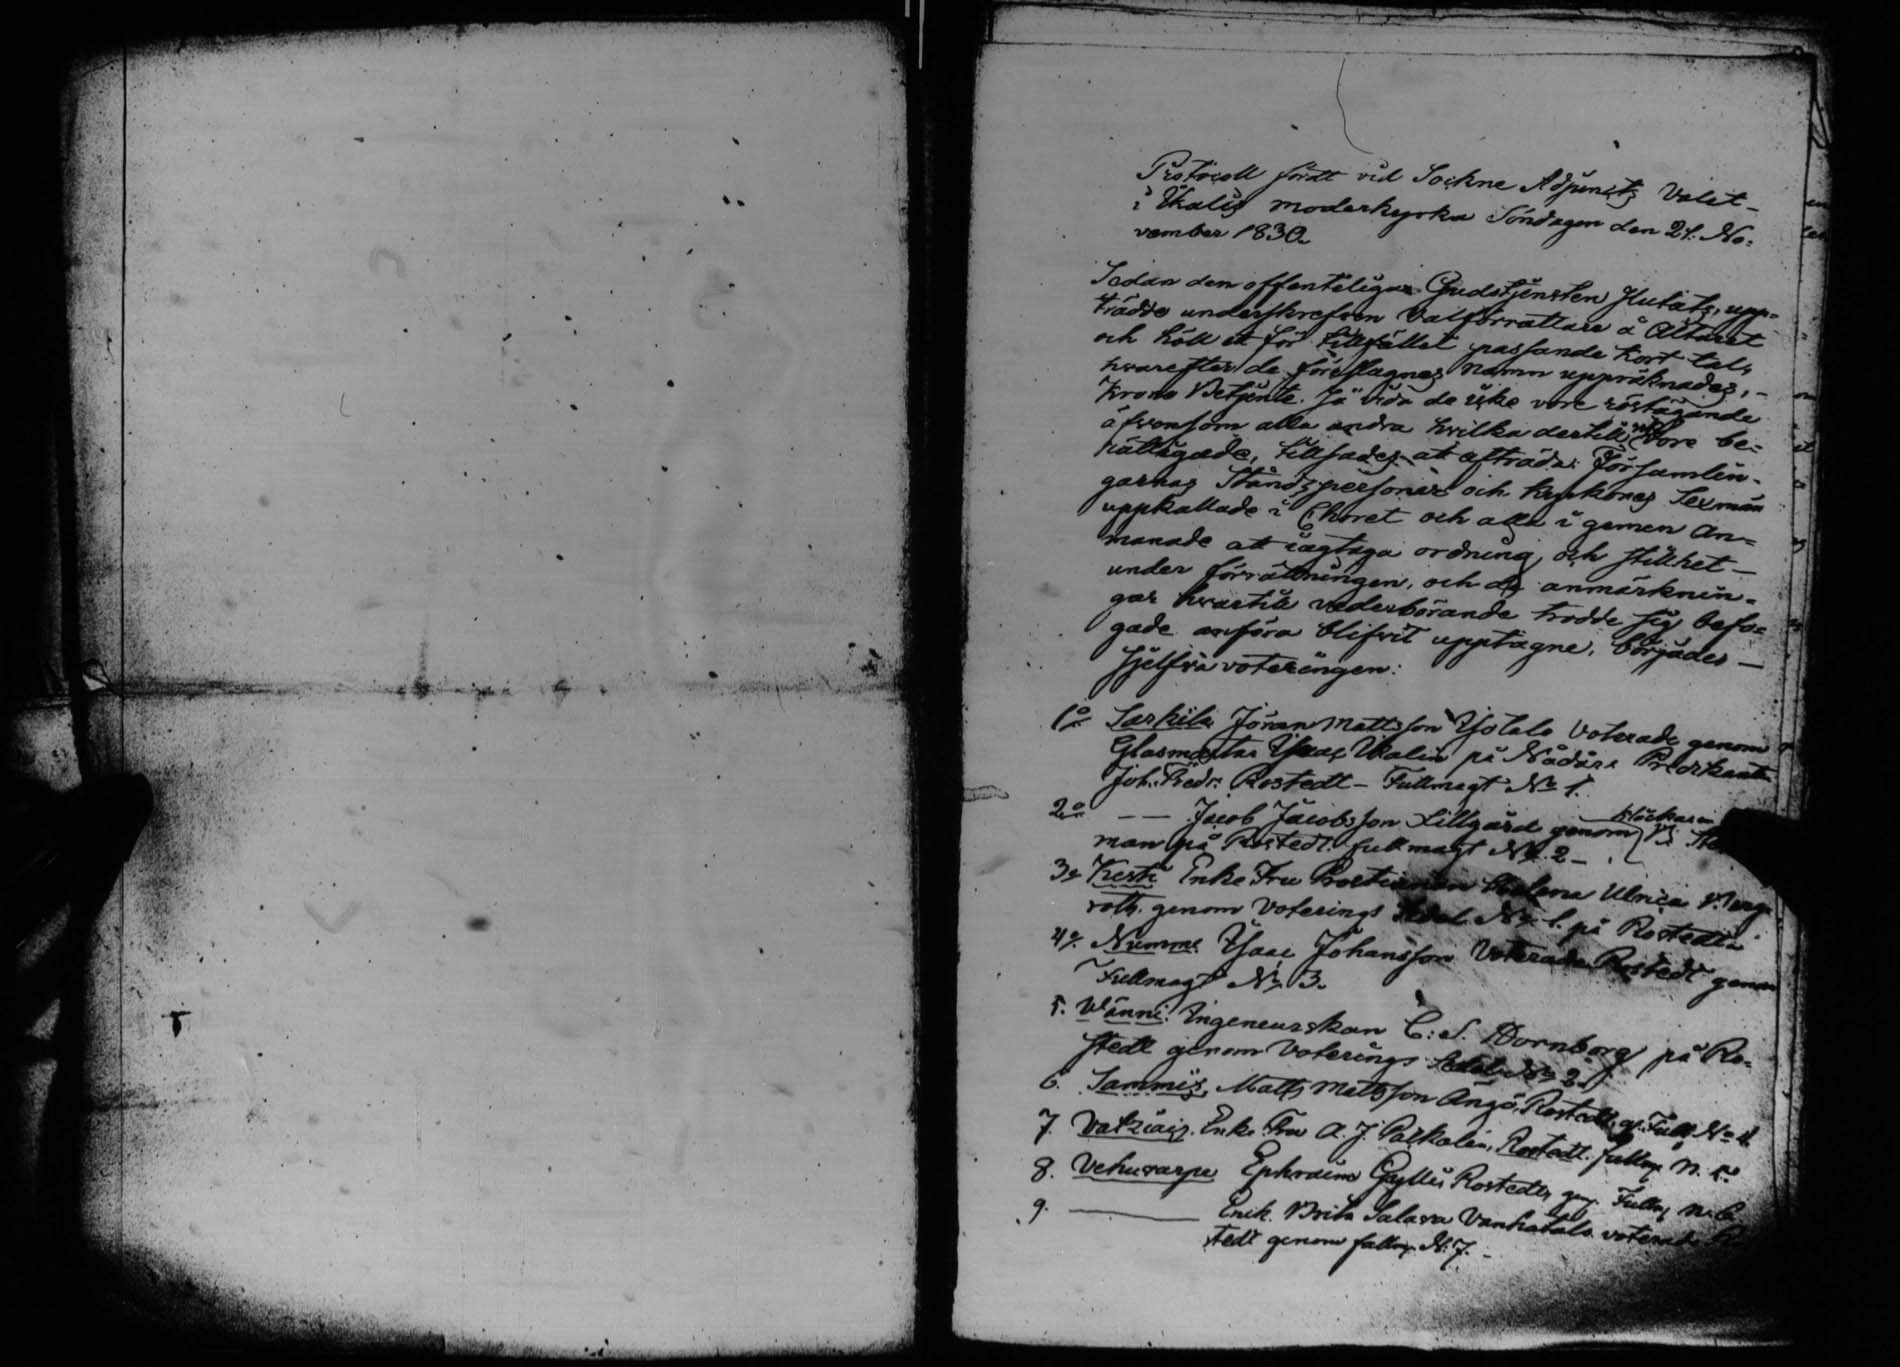 Protocoll fördt vid Sockne Adjuncts Valet
i Ikalis moderkyrka Söndagen den 21. No=
vember 1830.
Sedan den offenteliga Gudstjensten slutats, upp=
trädde underskrefven Valförrättare å Altaret
och höll et för tillfället passande kort tal,
hvarefter de föreslagnes namn uppräknades,
Krono Betjente. så vida de icke vore röstägande
äfvensom alla andra hvilka dertill vore be=
rättigade, tillsades at afträda. Församlin=
garnas Ståndspersoner och kyrkones Sexmän
uppkallade i Choret och alla i gemen an=
manade att iagttaga ordning och stillhet
under förrättningen, och de anmärknin=
gar hvartill vederbörande trodde sig befo=
gade anföra blifvit upptagne, börjades
sjelfva voteringen:
1o Sarkila Jöran Mattsson Ysotalo voterade genom
Glasmästar Isaac Ikalin på Nådårs Predikanten
Joh: Fredr: Rostedt – Fullmagt No 1.
2o — — Jacob Jacobsson Lillgård genom Klockaren
man på Rostedt. fullmagt No 2 –
3o Kesti Enke Fru Prostinnan Helena Ulrica Berg=
roth. genom Voterings Sedel No 1. på Rostedt
4o Numme Isaac Johansson Voterade Rostedt genom
Fullmagt No 3.
5. Wänni Ingeneurskan C: S. Dornborg på Ro=
stedt genom Voterings Sedel No 2
6. Sammis, Matts Mattsson Ångö, Rostedt, g. Full. No 4.
7. Enke Fru A. J. Paskalin, Rostedt. fullm. N. 5.
8. Vehuvarpe Ephraim Gyllis Rostedt, gen. Fullm. N. 6
9. ——— Enk. Brita Salava Vanhatalo voterade
stedt genom fullm. N. 7. –